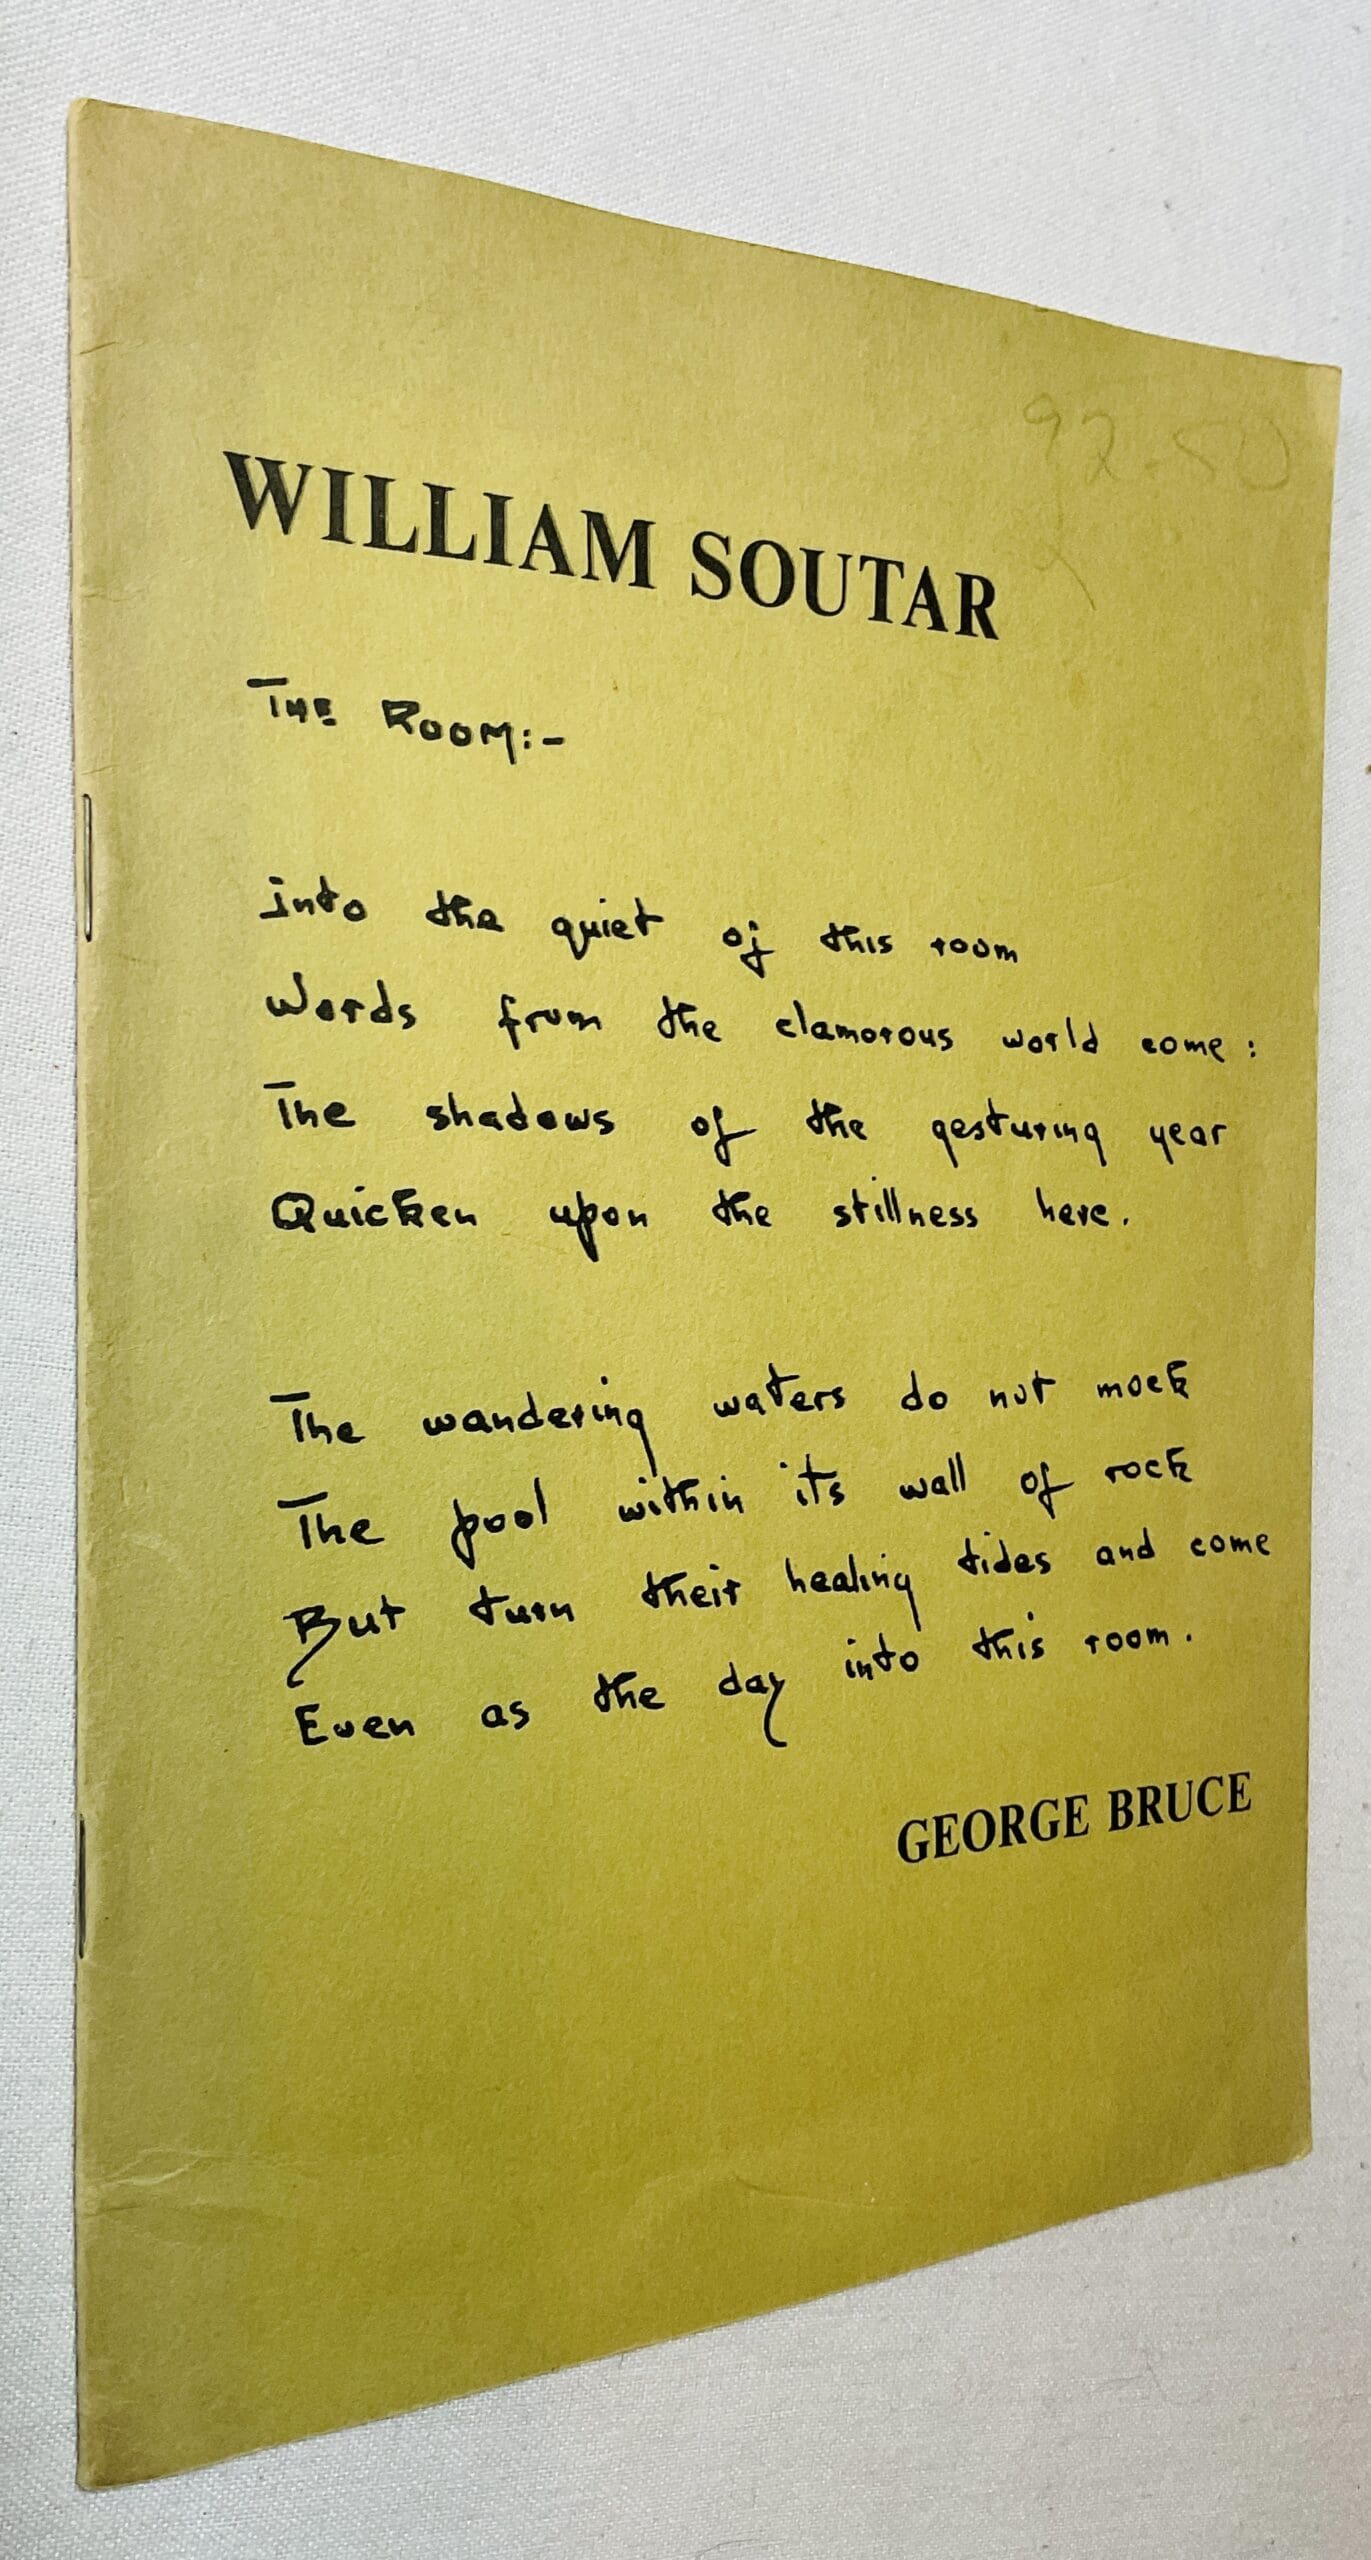 92.50
WILLIAM SOUTAR
THE ROOM:-
into the quiet of this room
Words from the clamorous world come:
The shadows of the gesturing year
Quicken upon the stillness here.
The wandering waters do not mock
The pool within its wall of rock
But turn their healing tides and come
Even as the day into this room.
GEORGE BRUCE